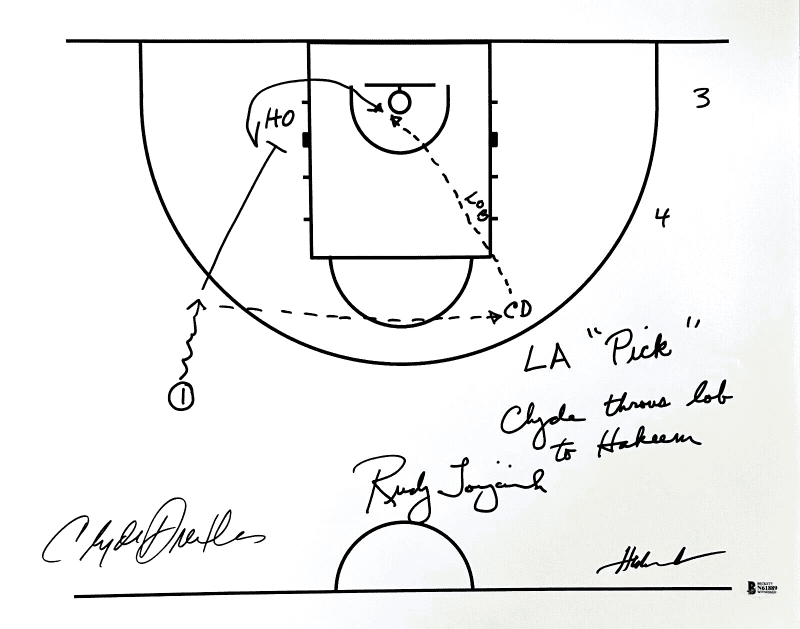 HO
3
LOB
4
CD
1
LA "Pick"
Clyde throws lob
to Hakeem
Rudy Tomjanovich
Clyde Drexler
BECKETT
WITNESSED